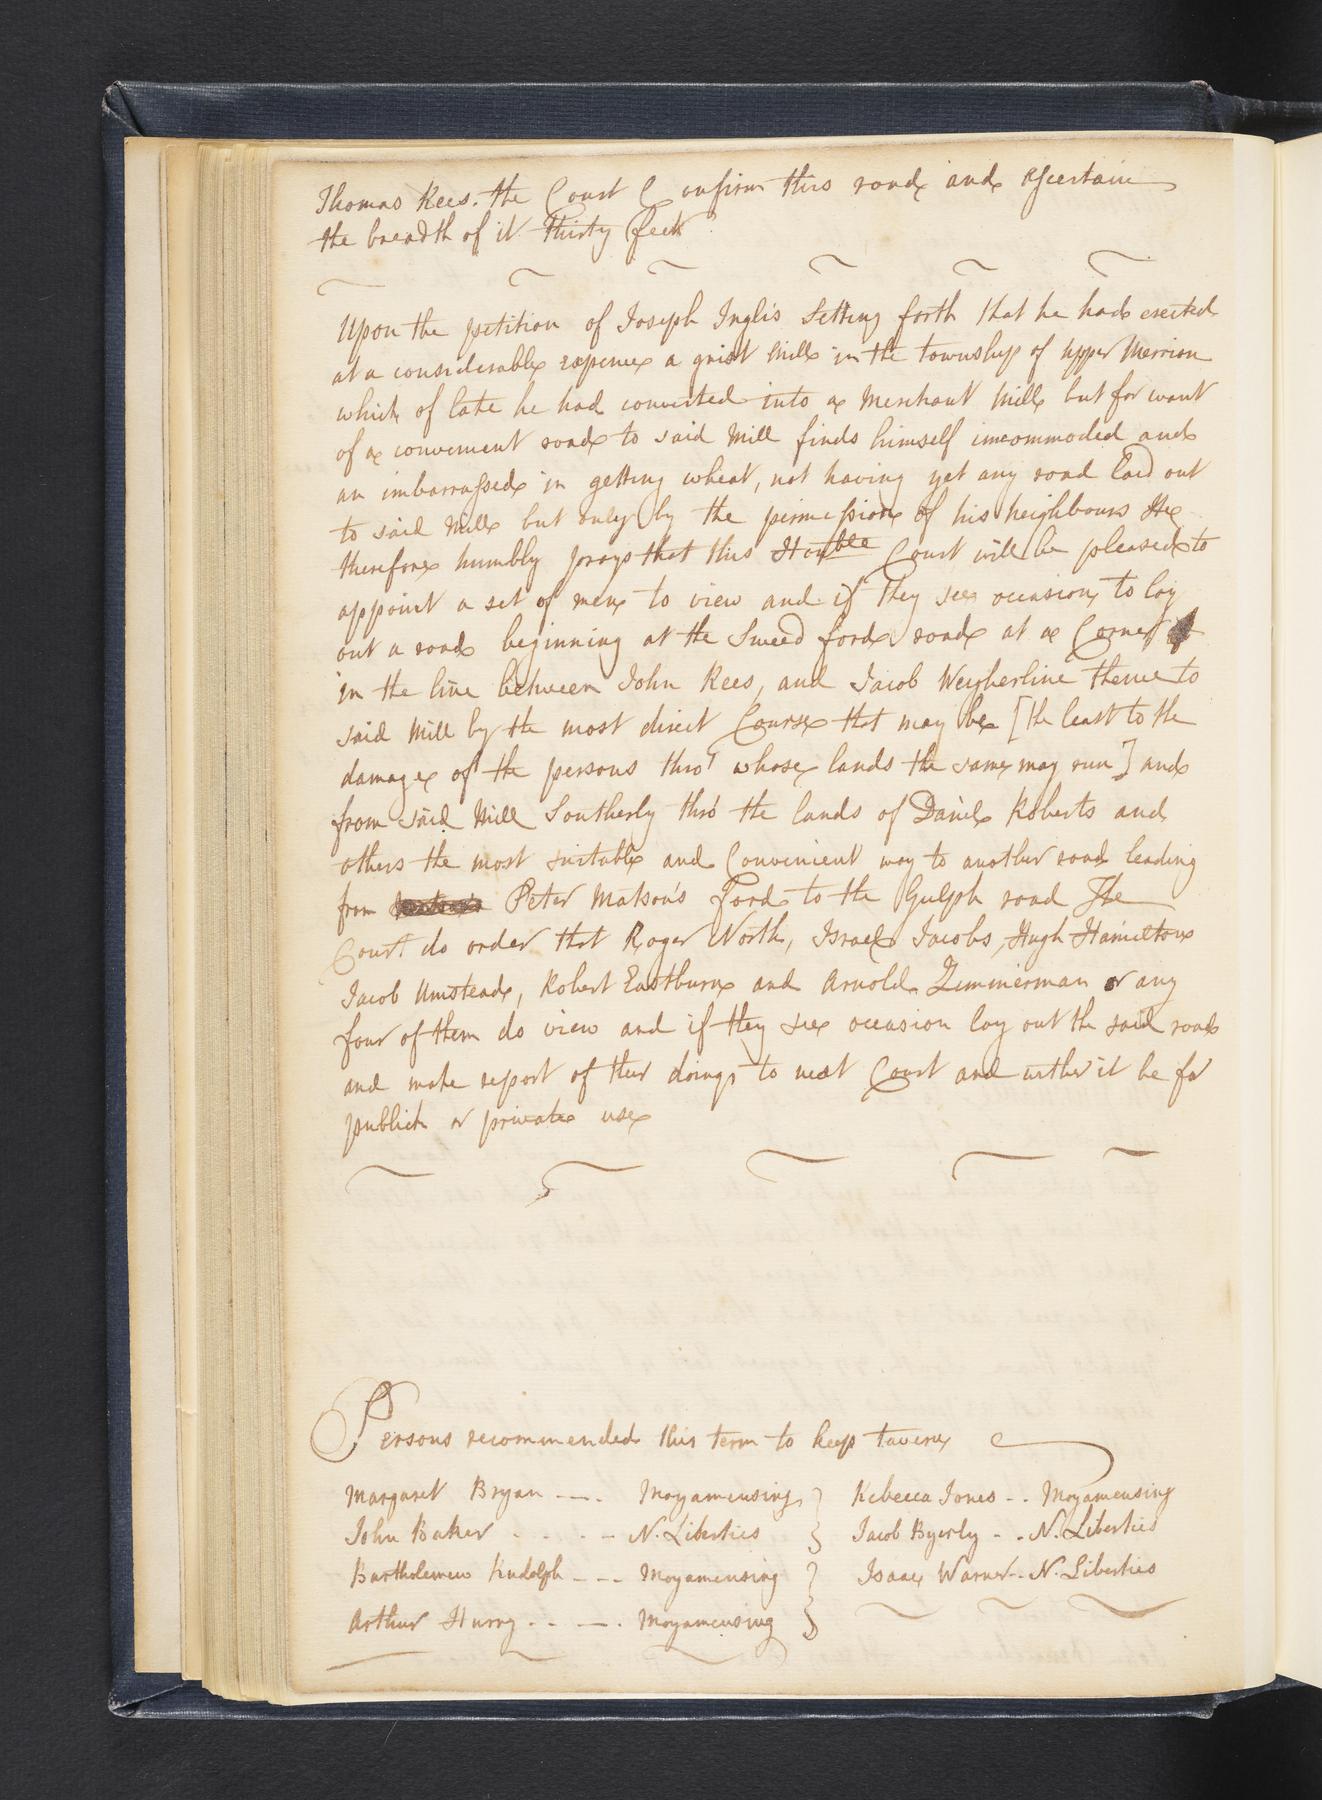 Thomas Rees. the Court Confirm this road and ascertain
the breadth of it thirty feet
Upon the petition of Joseph Inglis Setting forth that he had erected
at a considerable expence a grist Mill in the township of upper Merrion
which of late he had converted into a Merchant Mill but for want
of a convenient road to said Mill finds himself incommoded and
an imbarrassed in getting wheat, not having yet any road laid out
to said Mill but only by the permission of his neighbours He
therefore humbly prays that this Honble Court will be pleased to
appoint a set of men to view and if they see occasion to lay
out a road beginning at the Sweed ford road at a Corner
in the line between John Rees, and Jacob Weigherline thence to
said Mill by the most direct Course that may be [the least to the
damage of the persons thro' whose lands the same may run] and
from said Mill Southerly thro' the lands of Daniel Roberts and
others the most suitable and Convenient way to another road leading
from Peter Matson's Ford to the Gulph road The
Court do order that Roger North, Israel Jacobs, Hugh Hamilton
Jacob Umstead, Robert Eastburn and Arnold Zimmerman or any
four of them do view and if they see occasion lay out the said road
and make report of their doings to next Court and wether it be for
publick or private use
Persons recommended this term to keep tavern
Margaret Bryan --. Moyamensing } Rebecca Jones -. Moyamensing
John Baker . . . - N. Liberties } Jacob Byerly - . N. Liberties
Bartholemew Rudolph - - - Moyamensing } Isaac Warner-. N. Liberties
Arthur Hurry . . --. Moyamensing }